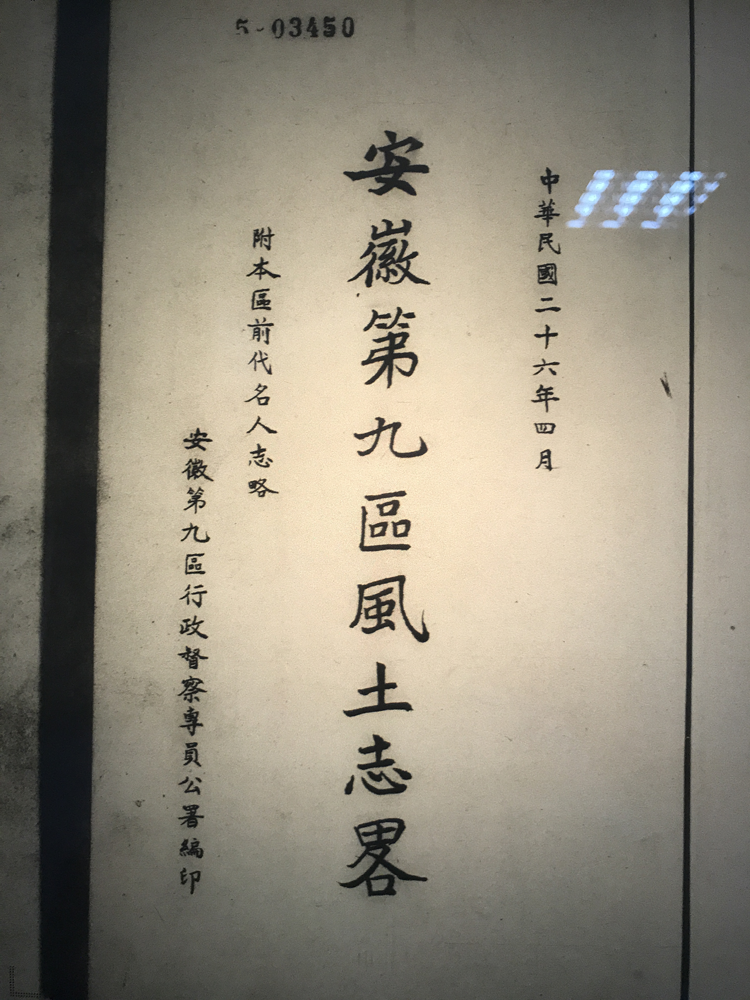 5-03450
中華民國二十六年四月
安徽第九區風土志畧
附本區前代名人志略
安徽第九區行政督察專員公署編印